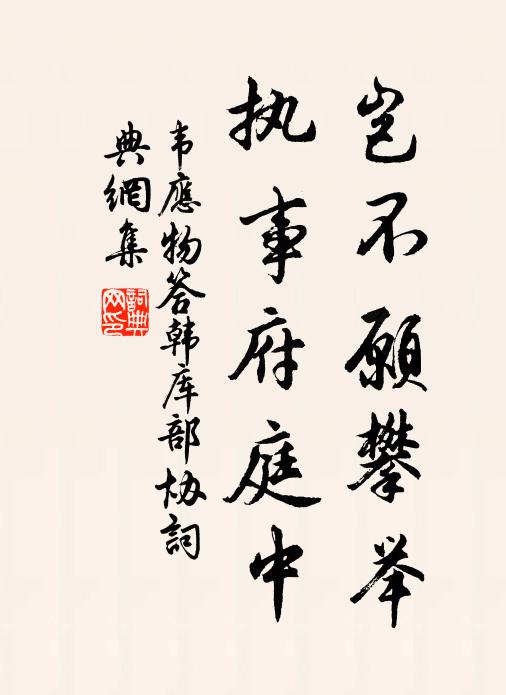 岂不願攀举
执事府庭中
韦應物答韩库部协詞
典網集
詞典网印